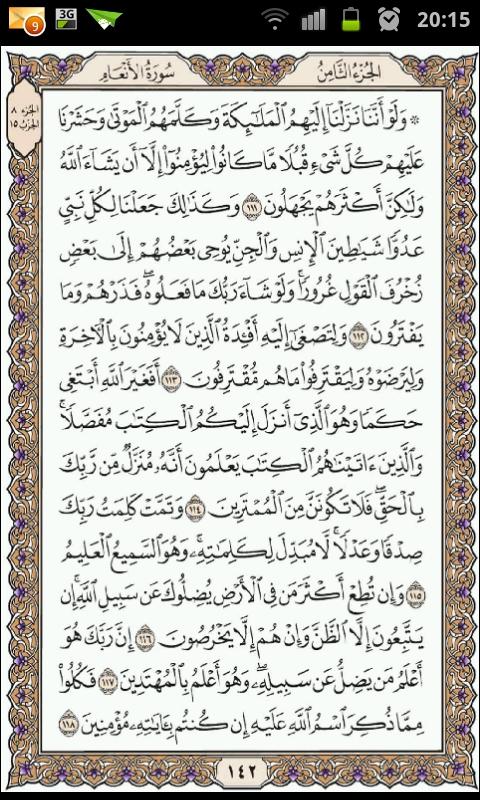 9
3G
20:15
سُورَةُ الأَنْعَامِ
الجُزْءُ الثَّامِنُ
الجزء ٨
الحزب ١٥
۞ وَلَوْ أَنَّنَا نَزَّلْنَآ إِلَيْهِمُ ٱلْمَلَٰٓئِكَةَ وَكَلَّمَهُمُ ٱلْمَوْتَىٰ وَحَشَرْنَا
عَلَيْهِمْ كُلَّ شَىْءٍ قُبُلًا مَّا كَانُوا۟ لِيُؤْمِنُوٓا۟ إِلَّآ أَن يَشَآءَ ٱللَّهُ
وَلَٰكِنَّ أَكْثَرَهُمْ يَجْهَلُونَ ١١١ وَكَذَٰلِكَ جَعَلْنَا لِكُلِّ نَبِىٍّ
عَدُوًّا شَيَٰطِينَ ٱلْإِنسِ وَٱلْجِنِّ يُوحِى بَعْضُهُمْ إِلَىٰ بَعْضٍ
زُخْرُفَ ٱلْقَوْلِ غُرُورًا ۚ وَلَوْ شَآءَ رَبُّكَ مَا فَعَلُوهُ ۖ فَذَرْهُمْ وَمَا
يَفْتَرُونَ ١١٢ وَلِتَصْغَىٰٓ إِلَيْهِ أَفْـِٔدَةُ ٱلَّذِينَ لَا يُؤْمِنُونَ بِٱلْءَاخِرَةِ
وَلِيَرْضَوْهُ وَلِيَقْتَرِفُوا۟ مَا هُم مُّقْتَرِفُونَ ١١٣ أَفَغَيْرَ ٱللَّهِ أَبْتَغِى
حَكَمًا وَهُوَ ٱلَّذِىٓ أَنزَلَ إِلَيْكُمُ ٱلْكِتَٰبَ مُفَصَّلًا ۚ
وَٱلَّذِينَ ءَاتَيْنَٰهُمُ ٱلْكِتَٰبَ يَعْلَمُونَ أَنَّهُۥ مُنَزَّلٌ مِّن رَّبِّكَ
بِٱلْحَقِّ ۖ فَلَا تَكُونَنَّ مِنَ ٱلْمُمْتَرِينَ ١١٤ وَتَمَّتْ كَلِمَتُ رَبِّكَ
صِدْقًا وَعَدْلًا ۚ لَّا مُبَدِّلَ لِكَلِمَٰتِهِۦ ۚ وَهُوَ ٱلسَّمِيعُ ٱلْعَلِيمُ
١١٥ وَإِن تُطِعْ أَكْثَرَ مَن فِى ٱلْأَرْضِ يُضِلُّوكَ عَن سَبِيلِ ٱللَّهِ ۚ إِن
يَتَّبِعُونَ إِلَّا ٱلظَّنَّ وَإِنْ هُمْ إِلَّا يَخْرُصُونَ ١١٦ إِنَّ رَبَّكَ هُوَ
أَعْلَمُ مَن يَضِلُّ عَن سَبِيلِهِۦ ۖ وَهُوَ أَعْلَمُ بِٱلْمُهْتَدِينَ ١١٧ فَكُلُوا۟
مِمَّا ذُكِرَ ٱسْمُ ٱللَّهِ عَلَيْهِ إِن كُنتُم بِـَٔايَٰتِهِۦ مُؤْمِنِينَ ١١٨
١٤٢